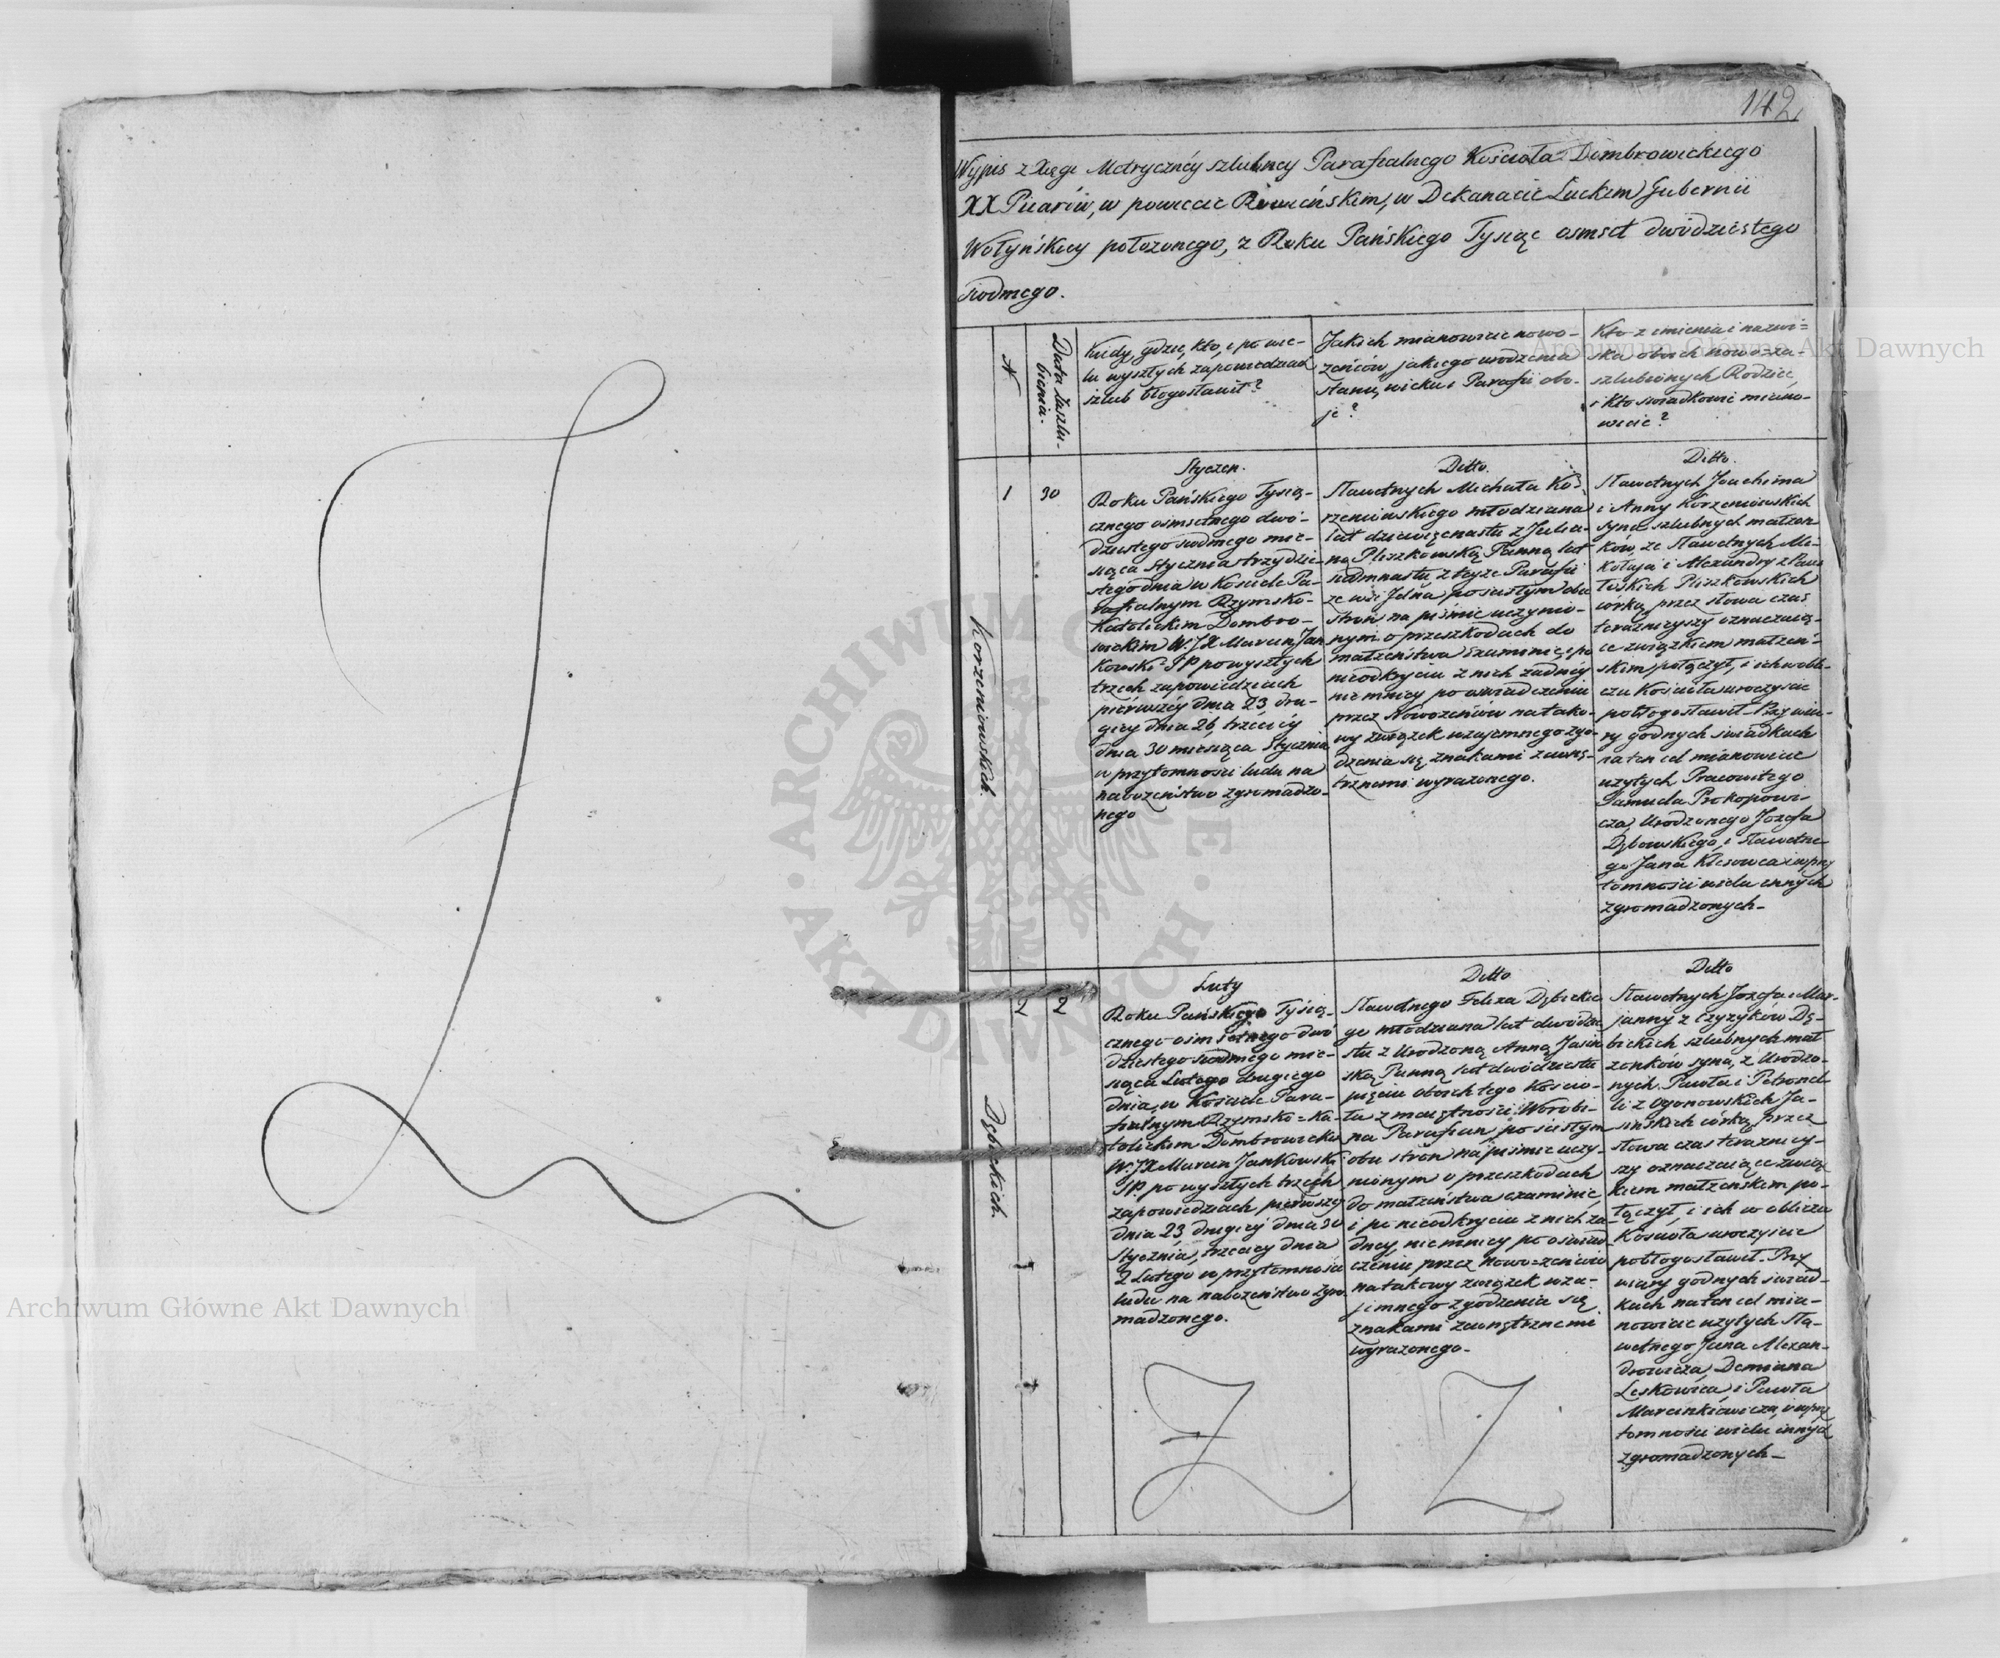 142
Wypis z Xięgi Metrycznéy szlubney Parafialnego Kościoła Dombrowickiego
XX Piiarów, w powiecie Rowieńskim, w Dekanacie Łuckim Gubernii
Wołyńskiey położonego, z Roku Pańskiego Tysiąc osmset dwódziestego
siodmego.
N
Data Zaszlu-
bienia.
Kiedy, gdzie, kto, i po wie-
lu wyszłych zapowiedziach
szlub błogosławił?
Jakich mianowicie nowo-
żeńców, jakiego urodzenia
stanu, wieku i Parafii obo-
je?
Kto z imienia i nazwi-
ska oboich nowo za-
szlubionych Rodzice,
i kto swiadkowie miano-
wicie?
Korzeniowskich.
1
30
Styczeń.
Roku Pańskiego Tysią-
cznego osmsetnego dwó-
dziestego siodmego mie-
siąca Stycznia trzydzie-
stego dnia w Kościele Pa-
rafialnym Rzymsko-
Katolickim Dombro-
wickim W. JX Marcin Jan
kowski SP po wyszłych
trzech zapowiedziach
pierwszéy dnia 23 dru-
giey dnia 26 trzeciéy
dnia 30 miesiąca Stycznia
w przytomności ludu na
nabożeństwo zgromadzo-
nego
Ditto.
Sławetnych Michała Ko-
rzeniowskiego młodziana
lat dziewiętnastu z Julia-
ną Pliszkowską Panną lat
siedmnastu, z teyże Parafii
ze wsi Jelna, po scisłym obu
stron na piśmie uczynio-
nym o przeszkodach do
małżeństwa examinie, i po
nieodkryciu z nich żadney
nie mniey po oswiadczeniu
przez Nowożeńców na tako-
wy związek wzajemnego zgo-
dzenia się znakami zewnę-
trznemi wyrażonego.
Ditto.
Sławetnych Joachima
i Anny Korzeniowskich
syna szlubnych małżon-
ków, ze Sławetnych Mi-
kołaja i Alexandry z Paw
Pliszkowskich
córką, przez słowa czas
teraznieyszy oznaczaią-
ce związkiem małżeń-
skim połączył, i ich w obli-
czu Kościoła uroczyscie
pobłogosławił. Przy wia-
ry godnych swiadkach
na ten cel mianowicie
użytych Pracowitego
Samuela Prokopowi-
cza, Urodzonego Jozefa
Dębowskiego, i Sławetne-
go Jana i w przy
tomności wielu innych
zgromadzonych-
Dębickich.
2
2
Luty
Roku Pańskiego Tysią-
cznego osim setnego dwó
dziestego siodmego mie-
siąca Lutego drugiego
dnia, w Kościele Para-
fialnym Rzymsko=Ka-
tolickim Dombrowickim
W. JX Marcin Jankowski
SP. po wyszłych trzech
zapowiedziach, pierwszey
dnia 23, drugiéy dnia 30
Stycznia, trzeciey dnia
2 Lutego w przytomności
ludu na nabożeństwo zgro
madzonego.
Ditto
Sławetnego Felixa Dębickie
go młodziana lat dwódzie
stu z Urodzoną Anną Jasiń
ską Panną lat dwódziestu
pięciu oboich tego Kościo-
ła z maiętności Worobi-
na Parafian, po scisłym
obu stron na piśmie uczy-
nionym o przeszkodach
do małżeństwa examinie,
i po nieodkryciu z nich ża-
dney, nie mniey po oswiad
czeniu przez Nowo-żeńców
na takowy związek wza-
jemnego zgodzenia się
znakami zewnętrznemi
wyrażonego-
Ditto
Sławetnych Jozefa i Mar-
janny z Czyzyków Dę-
bickich szlubnych mał
żonków syna, z Urodzo-
nych Pawła i Petronel-
li z Ogonowskich Ja-
sińskich córką, przez
słowa czas teraźniey-
szy oznaczaiące związ
kiem małżeńskim po-
łączył, i ich w obliczu
Kościoła uroczyscie
pobłogosławił. Przy
wiary godnych swiad-
kach na ten cel mia-
nowicie użytych Sła-
wetnego Jana Alexan-
drowicza, Demiana
Leskowica, i Pawła
Marcinkiewicza, i w przy
tomności wielu innych
zgromadzonych-
Archiwum Główne Akt Dawnych
Archiwum Główne Akt Dawnych
ARCHIWUM GŁÓWNE AKT DAWNYCH